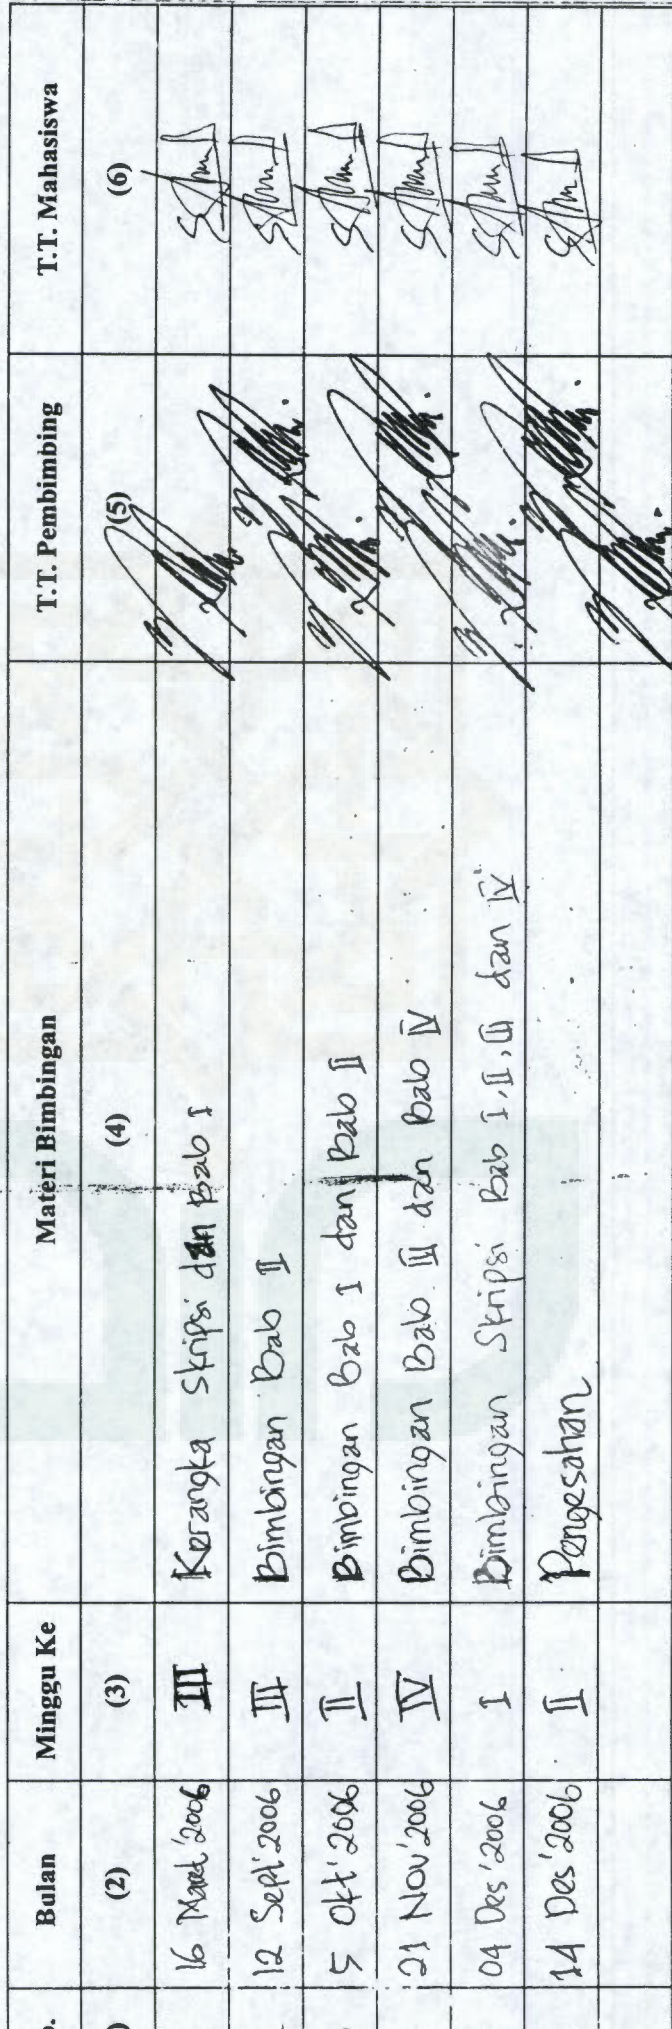 Bulan Minggu Ke Materi Bimbingan T.T. Pembimbing T.T. Mahasiswa
(2) (3) (4) (5) (6)
16 Maret'2006 III Kerangka Skripsi dan Bab I
12 Sept'2006 III Bimbingan Bab II
5 Okt'2006 II Bimbingan Bab I dan Bab II
21 Nov'2006 IV Bimbingan Bab III dan Bab IV
04 Des'2006 I Bimbingan Skripsi Bab I, II, III dan IV
14 Des'2006 II Pengesahan